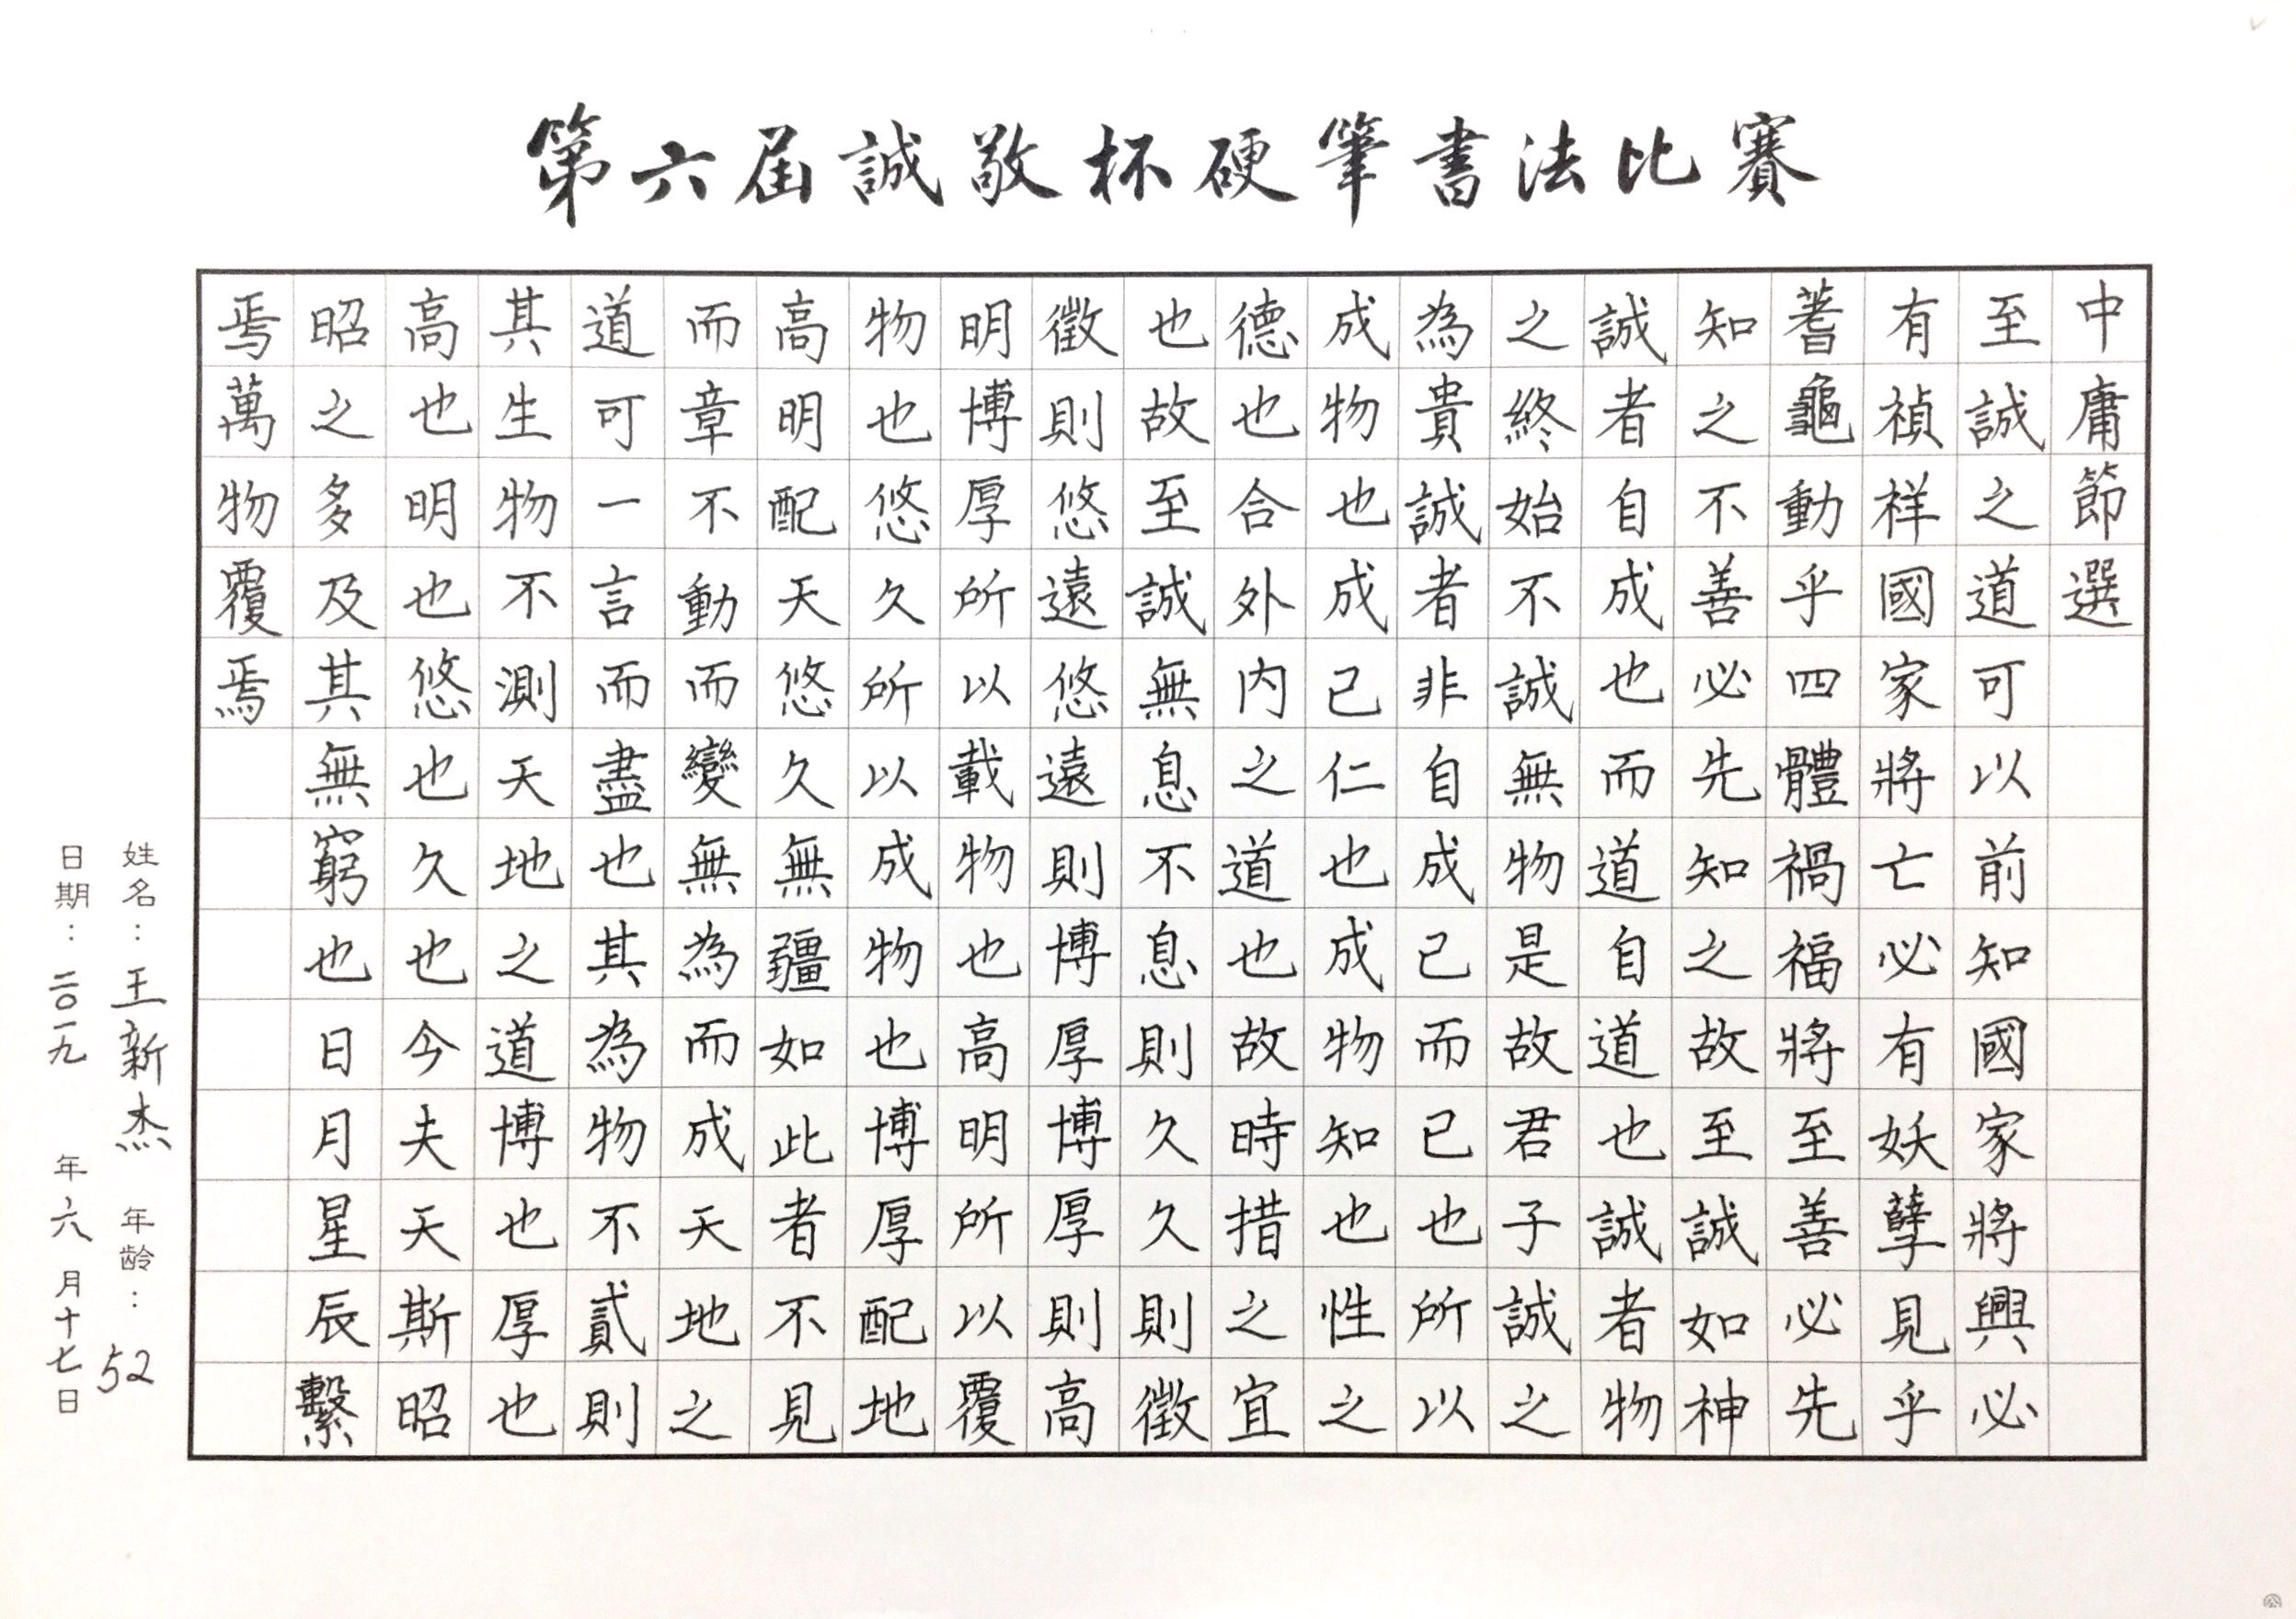 第六届誠敬杯硬筆書法比賽
中庸節選
至誠之道可以前知國家將興必
有禎祥國家將亡必有妖孽見乎
蓍龜動乎四體禍福將至善必先
知之不善必先知之故至誠如神
誠者自成也而道自道也誠者物
之終始不誠無物是故君子誠之
為貴誠者非自成己而已也所以
成物也成己仁也成物知也性之
德也合外内之道也故時措之宜
也故至誠無息不息則久久則徵
徵則悠遠悠遠則博厚博厚則高
明博厚所以載物也高明所以覆
物也悠久所以成物也博厚配地
高明配天悠久無疆如此者不見
而章不動而變無為而成天地之
道可一言而盡也其為物不貳則
其生物不測天地之道博也厚也
高也明也悠也久也今夫天斯昭
昭之多及其無窮也日月星辰繫
焉萬物覆焉
姓名：王新杰 年龄：52
日期：二〇一九 年六月十七日